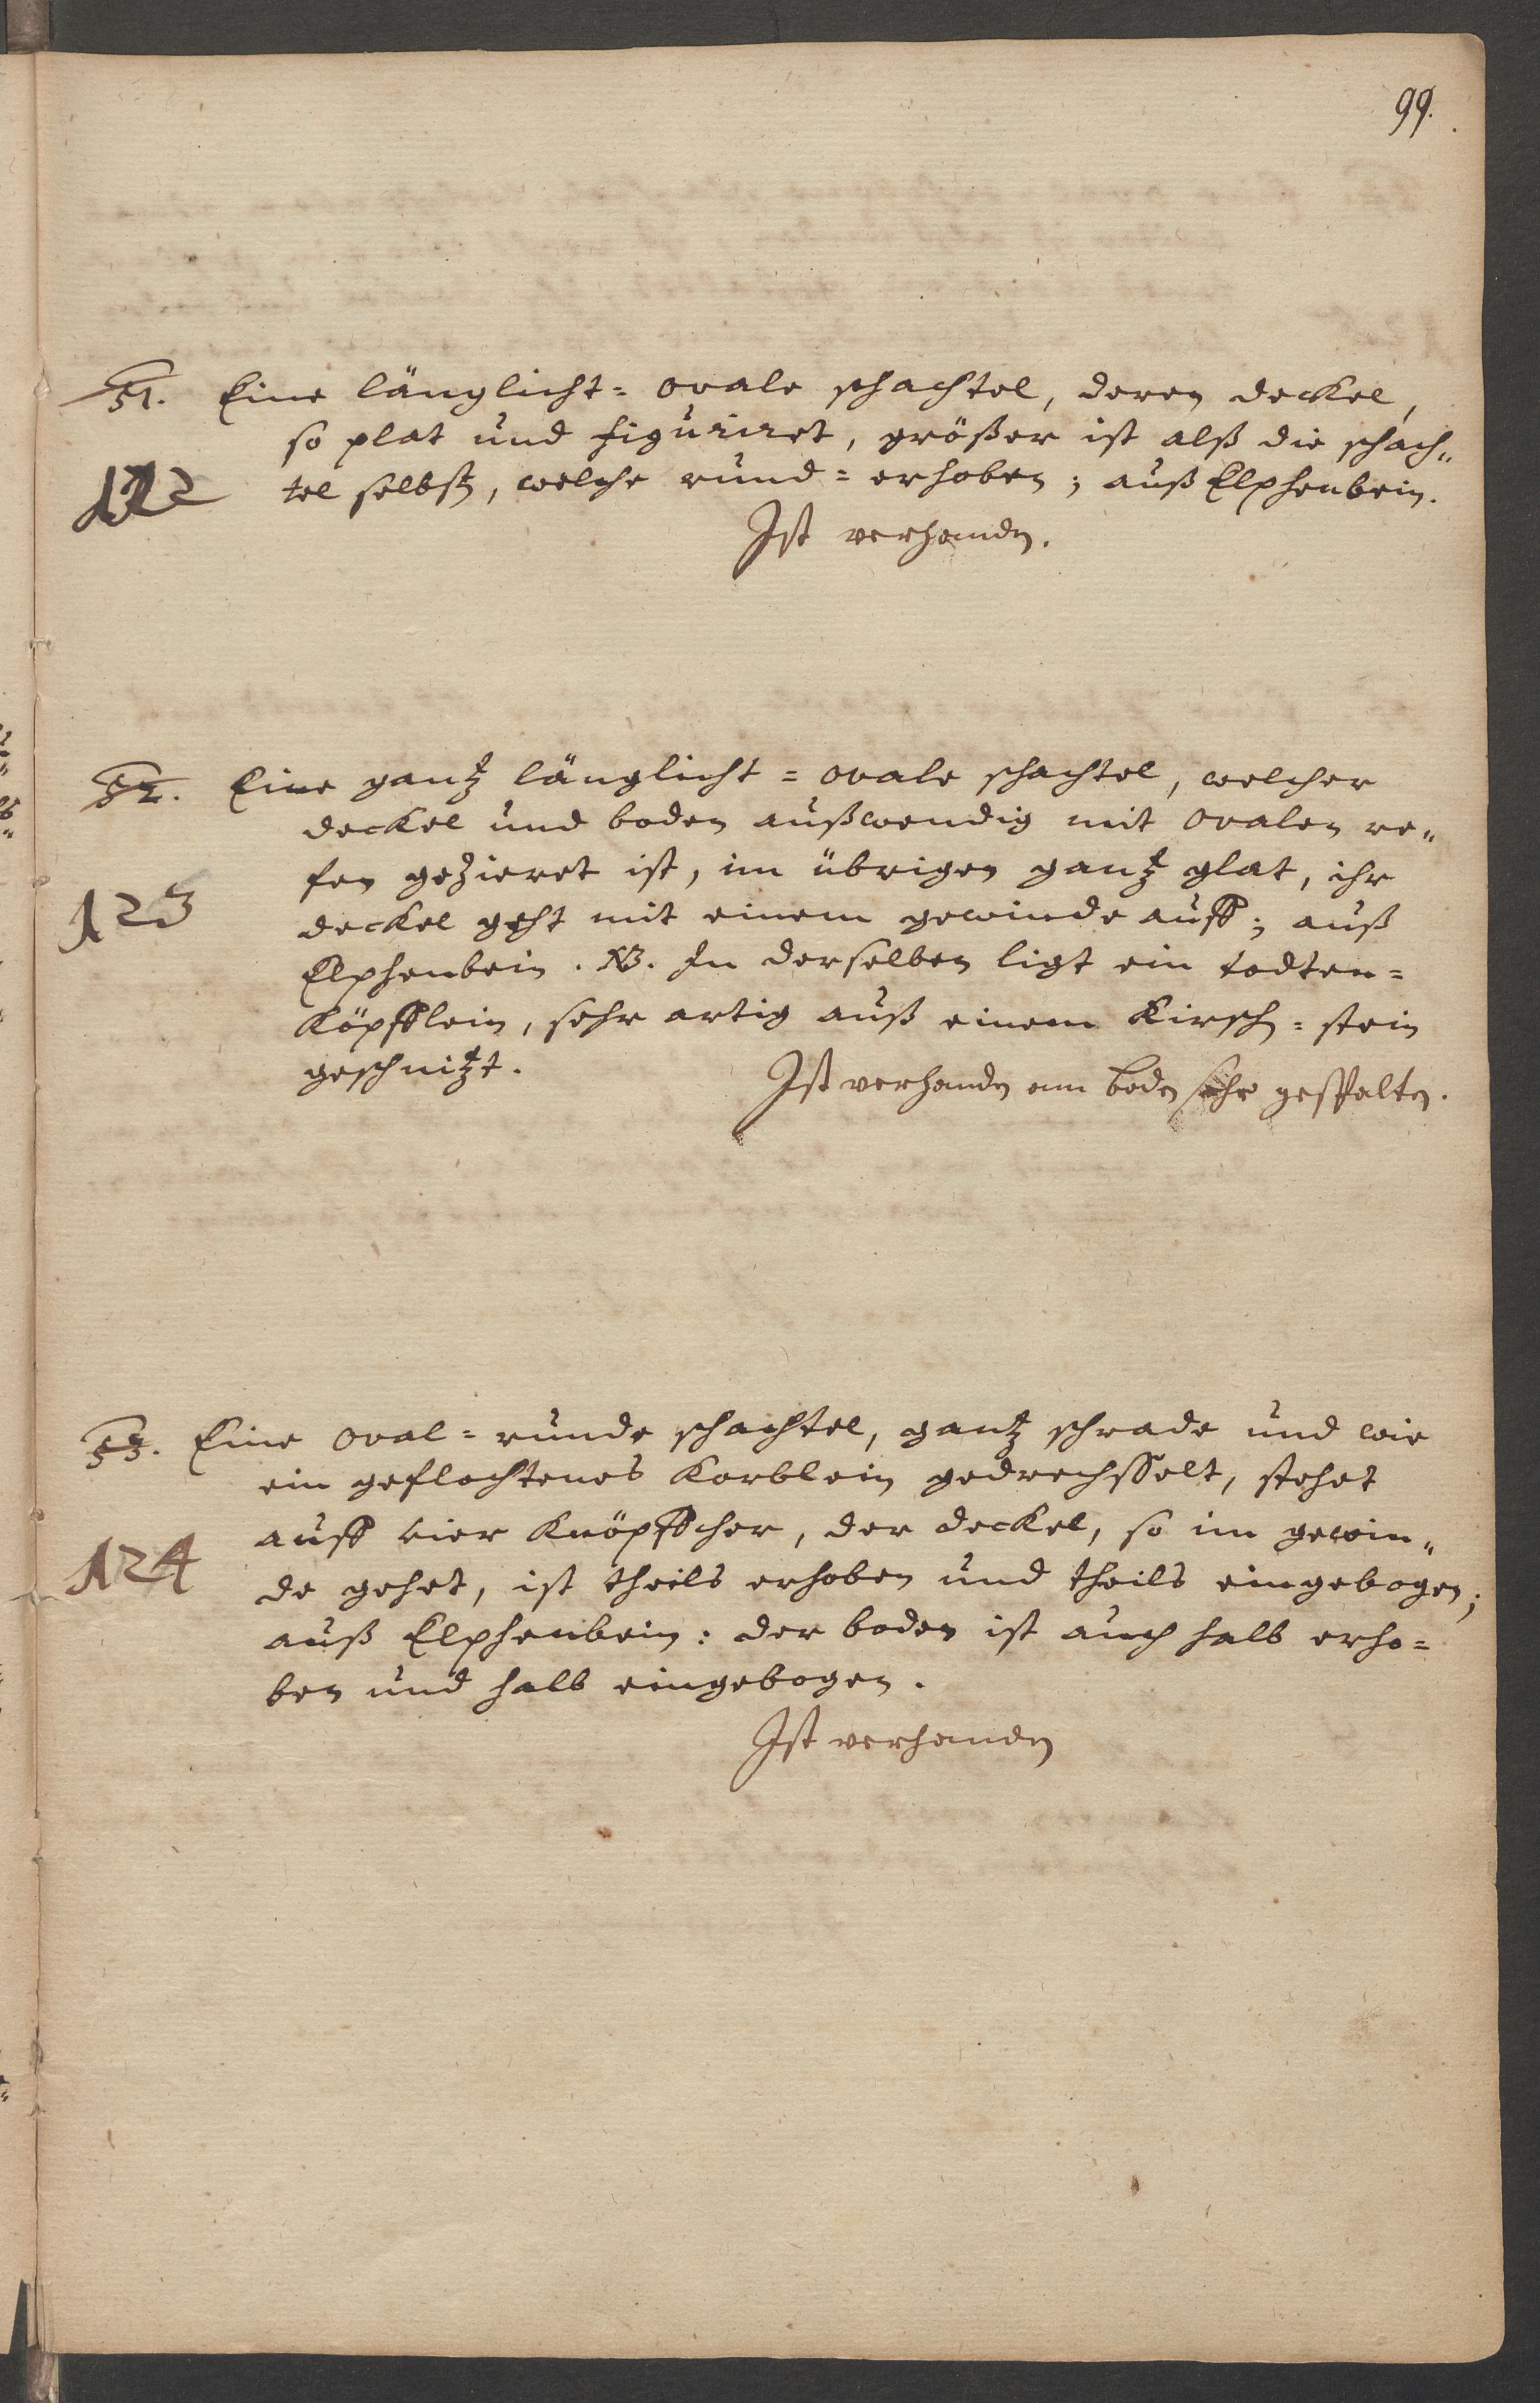 99.
51. Eine länglicht= ovale schachtel, deren deckel,
so plat und figuriret, größer ist alß die schach„
122 tel selbst, welche rund= erhoben; auß Elphenbein.
Ist verhanden.
52. Eine gantz länglicht= ovale schachtel, welcher
deckel und boden außwendig mit ovalen re„
fen gezieret ist, im übrigen gantz glat, ihr
123 deckel geht mit einem gewinde auff; auß
Elphenbein. NB. In derselben ligt ein todten=
Köpfflein, sehr artig auß einem Kirsch= stein
geschnitzt.
Ist verhanden am boden sehr gespalten.
53. Eine oval= runde schachtel, gantz schrade und wie
ein geflochtenes Korblein gedrechsselt, stehet
auff vier Knöpffcher, der deckel, so im gewin„
124 de gehet, ist theils erhoben und theils eingebogen;
auß Elphenbein: der boden ist auch halb erho=
ben und halb eingebogen.
Ist verhanden